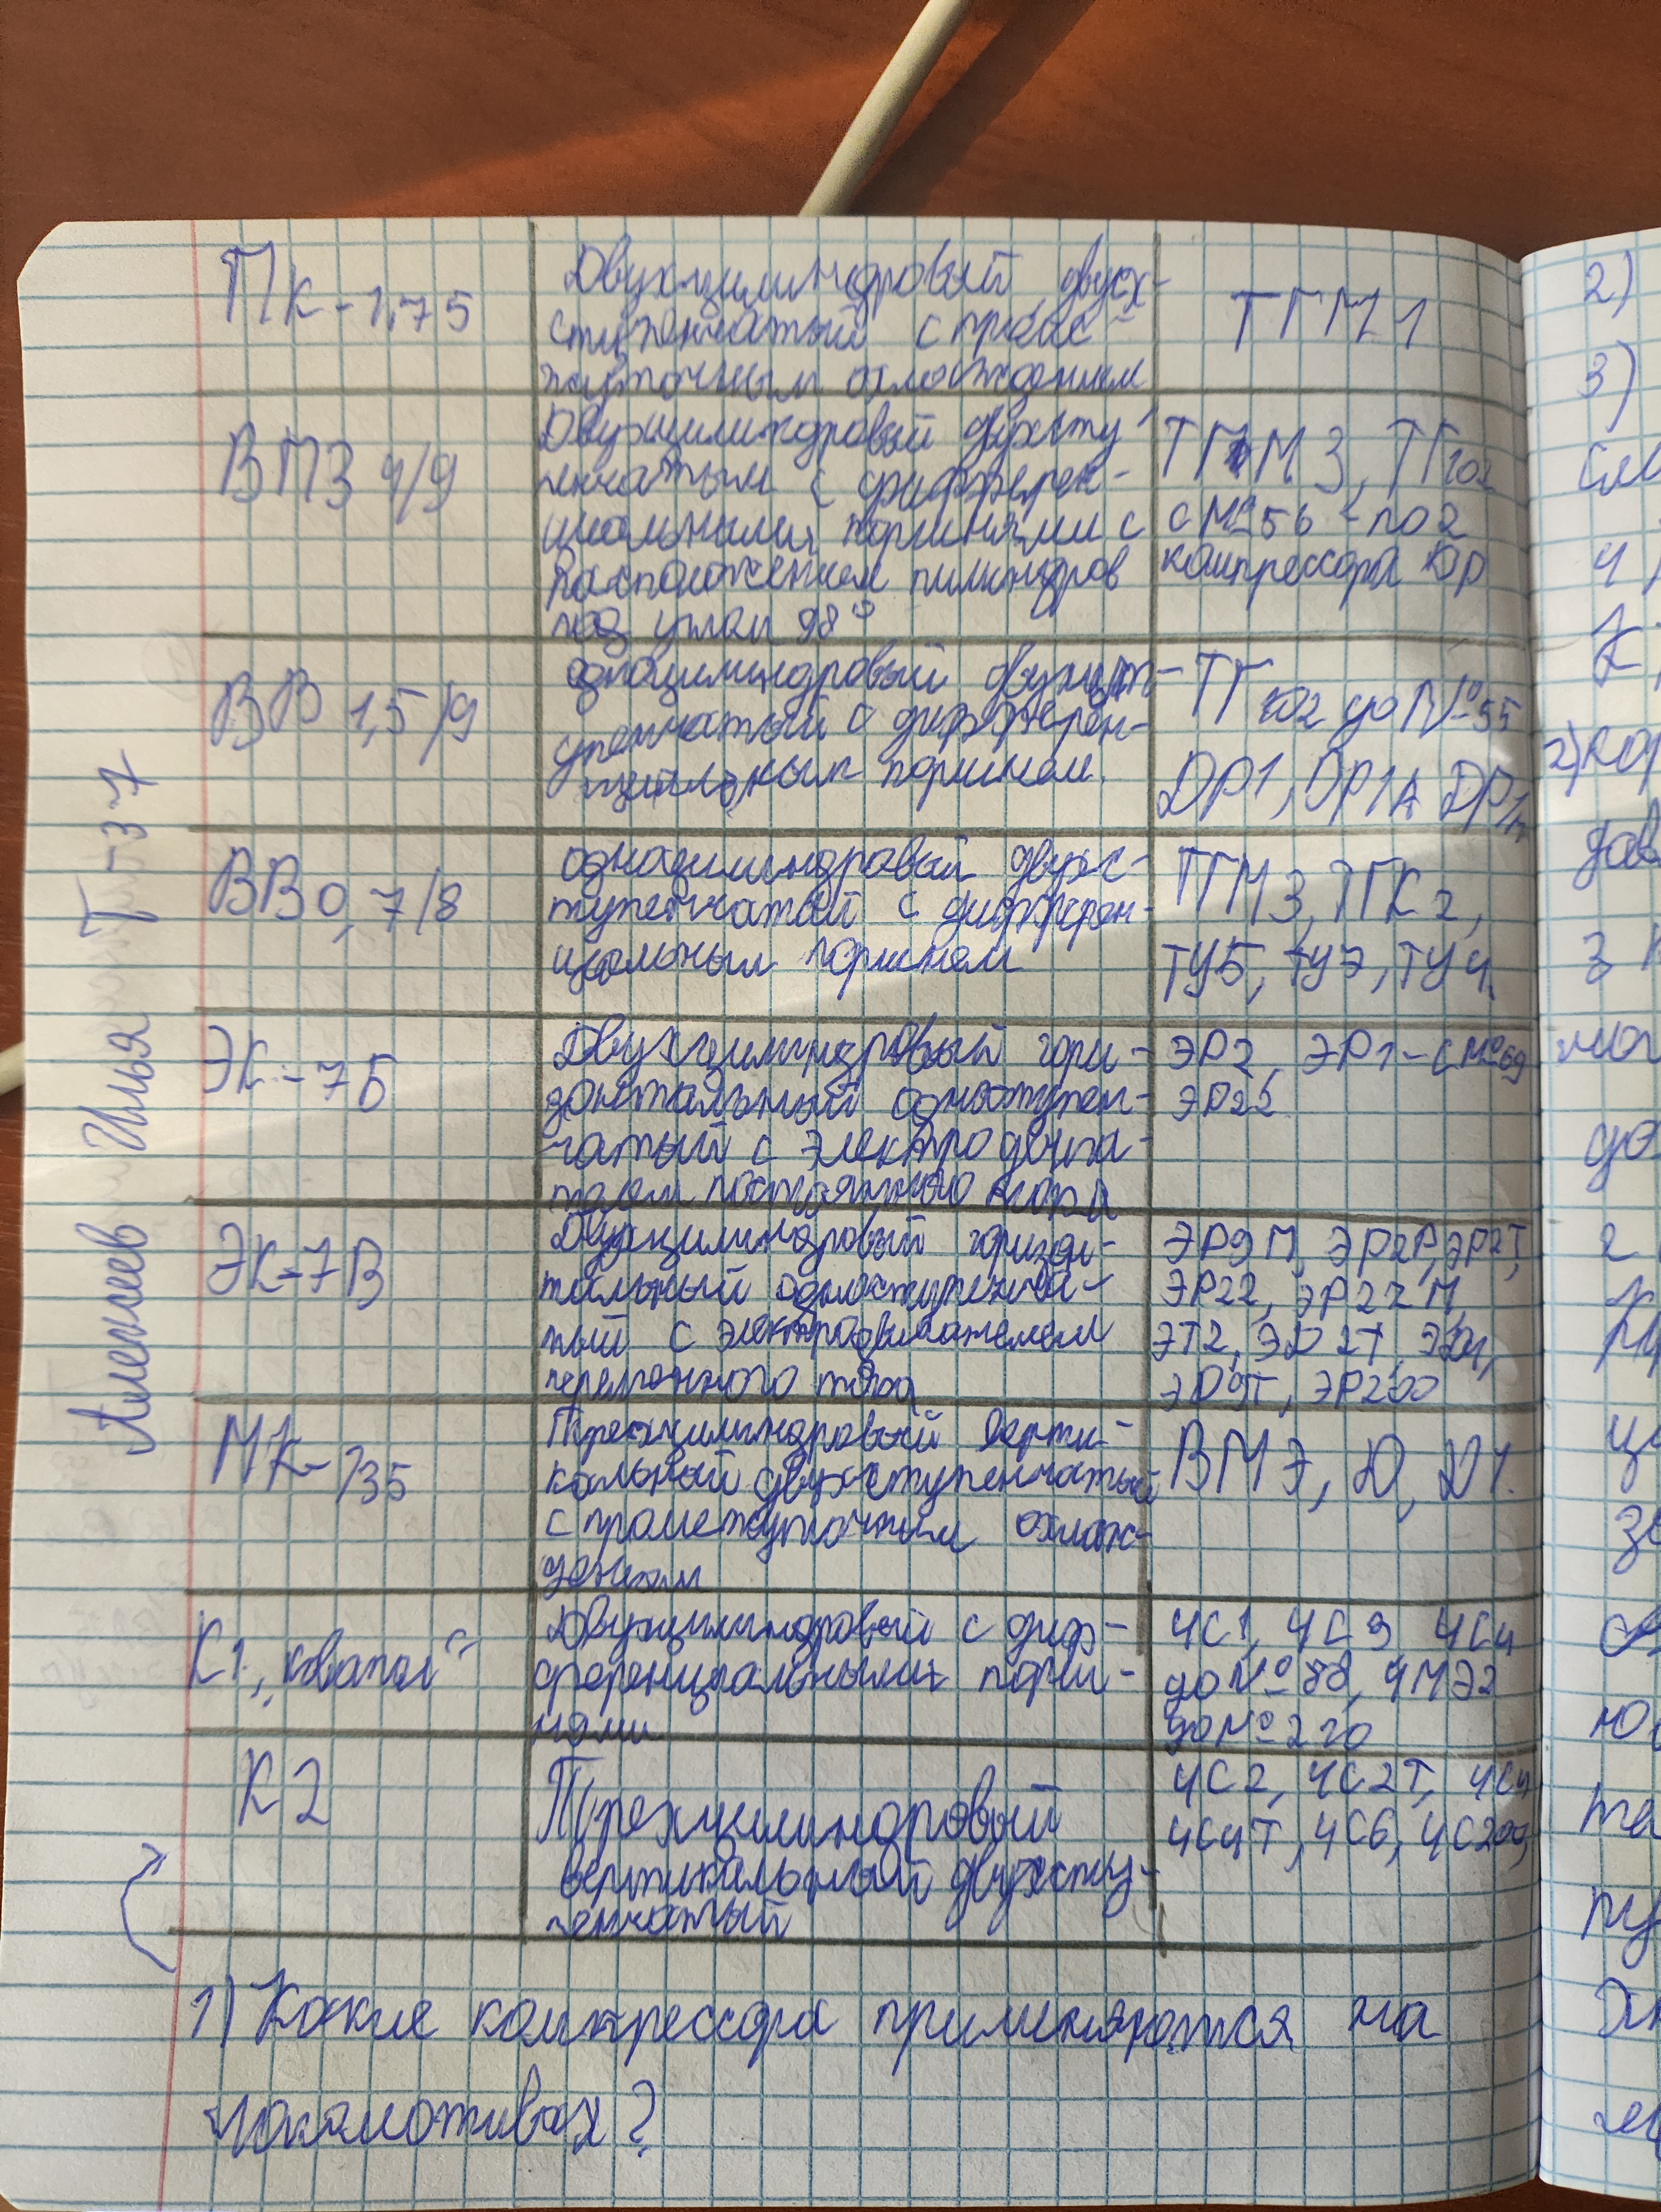 ПК-1,75
Двухцилиндровый двух-
ступенчатый с проме-
жуточным охлаждением
ТГМ1
ВПЗ 4/9
Двухцилиндровый двухсту
пенчатым с дифферен-
циальными поршнями с
расположением цилиндров
под углом 98°
ТГМ3, ТГ102
с №56 - по 2
компрессора ДР
ВВ 1,5/9
одноцилиндровый двухст-
упенчатый с дифферен-
циальным поршнем.
ТГ102 до №-55
ДР1, ДР1А ДР1п
ВВ 0,7/8
одноцилиндровый двухс-
тупенчатый с дифферен-
циальным поршнем
ТГМ3, ТГК2,
ТУ5, ТУ7, ТУ4.
ЭК-7Б
Двухцилиндровый гори-
зонтальный одноступен-
чатый с электродвига-
телем постоянного тока
ЭР2, ЭР1-с №69
ЭР22
ЭК-7В
Двухцилиндровый горизон-
тальный одноступенча-
тый с электродвигателем
переменного тока
ЭР9П, ЭР2Р, ЭР2Т,
ЭР22, ЭР22М,
ЭТ2, ЭД2Т,
ЭД9Т, ЭР200
МК-135
Трехцилиндровый верти-
кальный двухступенчатый
с промежуточным охлаж-
дением
ВМЭ, Д, Д1.
К1 „ковапол"
Двухцилиндровый с диф-
ференциальными порш-
нями
ЧС1, ЧС3 ЧС4
до №88, ЧМЭ2
до № 220
К2
Трехцилиндровый
вертикальный двухсту-
пенчатый
ЧС2, ЧС2Т, ЧС4
ЧС4Т, ЧС6, ЧС200,
1) Какие компрессора применяются на
локомотивах?
Алексеев Илья Т-37
2)
3)